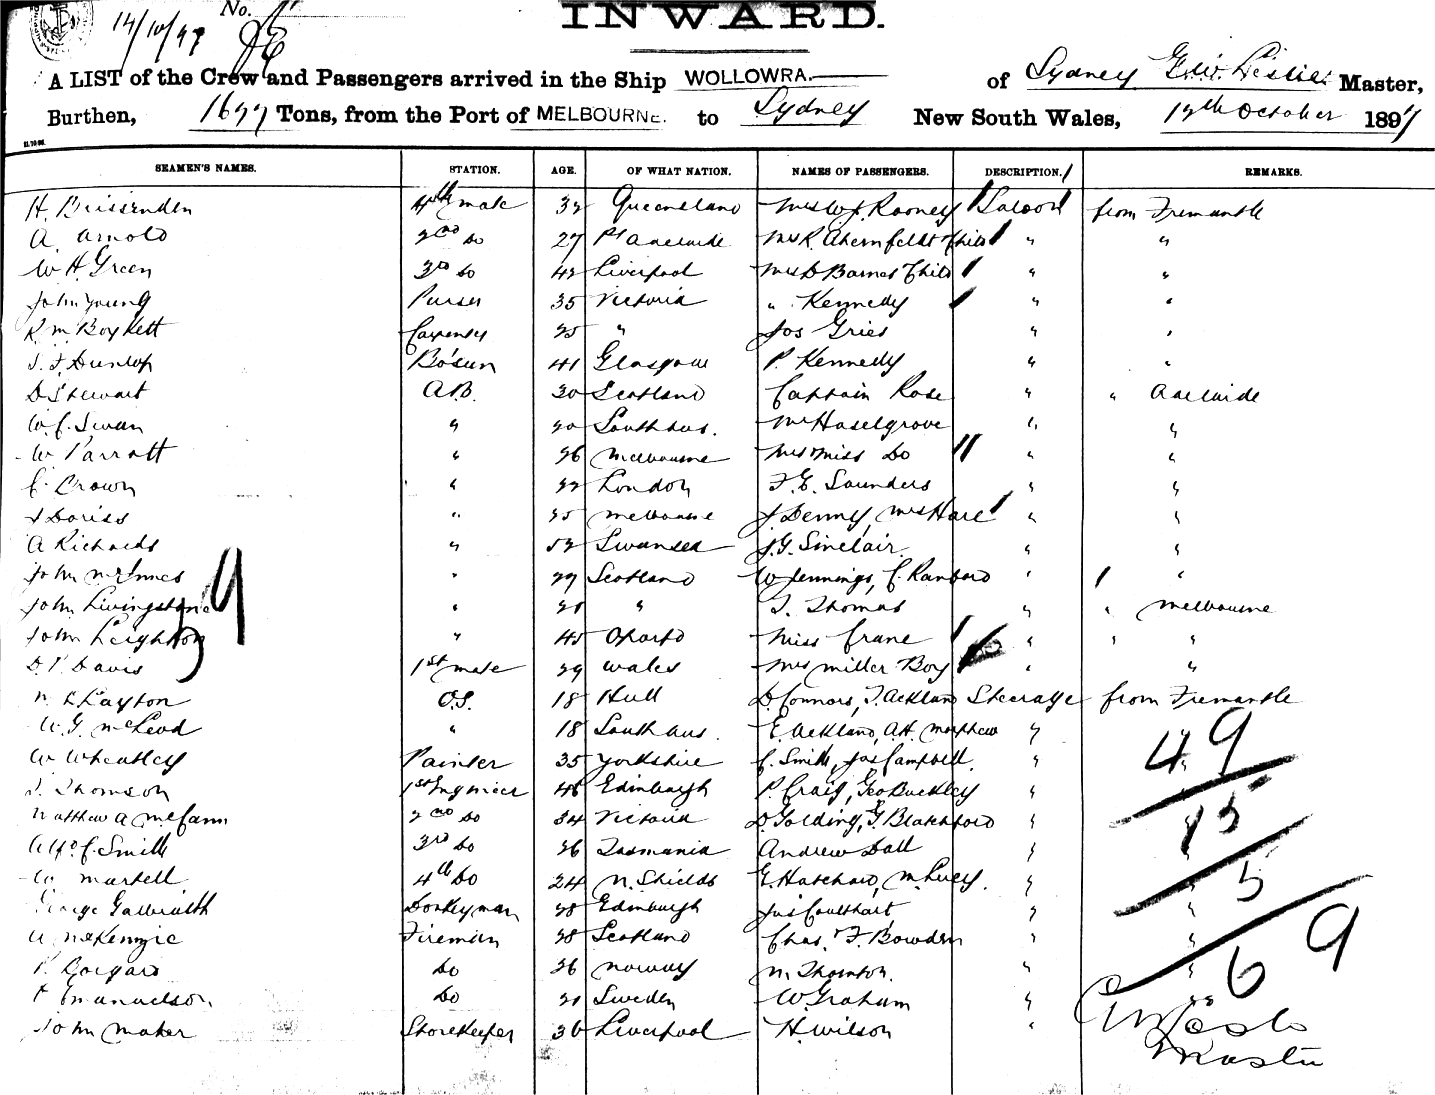 No.
14/10/97
INWARD.
A LIST of the Crew and Passengers arrived in the Ship WOLLOWRA. of Sydney Master,
Burthen, Tons, from the Port of MELBOURNE. to Sydney New South Wales, October 1897
SEAMEN'S NAMES. STATION. AGE. OF WHAT NATION. NAMES OF PASSENGERS. DESCRIPTION. REMARKS.
H. Brissenden mate 32 Queensland Mrs W J. Rooney Saloon from Fremantle
A. Arnold 2nd do 27 Pt Adelaide Mrs R. Ahernfeldt & Child " "
W H Green 3rd do 42 Liverpool Mrs D Barnes & Child " "
John Young Purser 35 Victoria " Kennedy " "
R. M. Boykett Carpenter 25 " Jos Gries " "
J. F. Dunlop Bo'sun 41 Glasgow P. Kennedy " "
D Stewart A.B. 30 Scotland Captain Rose " " Adelaide
W. C. Swan " 20 South aus. Mr Haselgrove " "
W Parrott " 26 Melbourne Mrs & Miss do " "
C. Brown " 22 London F. E. Saunders " "
J Doriss " 25 Melbourne J Denny, Mrs Hare " "
A Richards " 52 Swansea J. G. Sinclair " "
John McInnes " 29 Scotland W Jennings, C. Ranford " "
John Livingstone " 21 " G. Thomas " " Melbourne
John Leighton " 45 Oporto Miss Crane " " "
D. P. Davis 1st mate 29 Wales Mrs Miller & Boy " "
Layton O.S. 18 Hull D. Connors, J. Ackland Steerage from Fremantle
W. G. McLeod " 18 South aus. E. Ackland, A. H. Morphew "
W Wheatley Painter 35 Yorkshire C. Smith, Jas Campbell "
J. Thomson 1st Engineer 46 Edinburgh P. Craig, Geo Buckley "
Matthew A McCann 2nd do 34 Victoria D. Golding, G. Blatchford "
Alf. C. Smith 3rd do 26 Tasmania Andrew Dall "
W. Martell 4th do 24 N. Shields E. Hatchard, M. Lucy. "
George Galbraith Donkeyman 28 Edinburgh Jas Coulthart "
A. McKenzie Fireman 28 Scotland Chas. F. Bowden "
P. do 26 Norway M. Thornton. "
Emanuelson do 21 Sweden W Graham "
John Maker Storekeeper 36 Liverpool H. Wilson "
49
15
5
69
Master